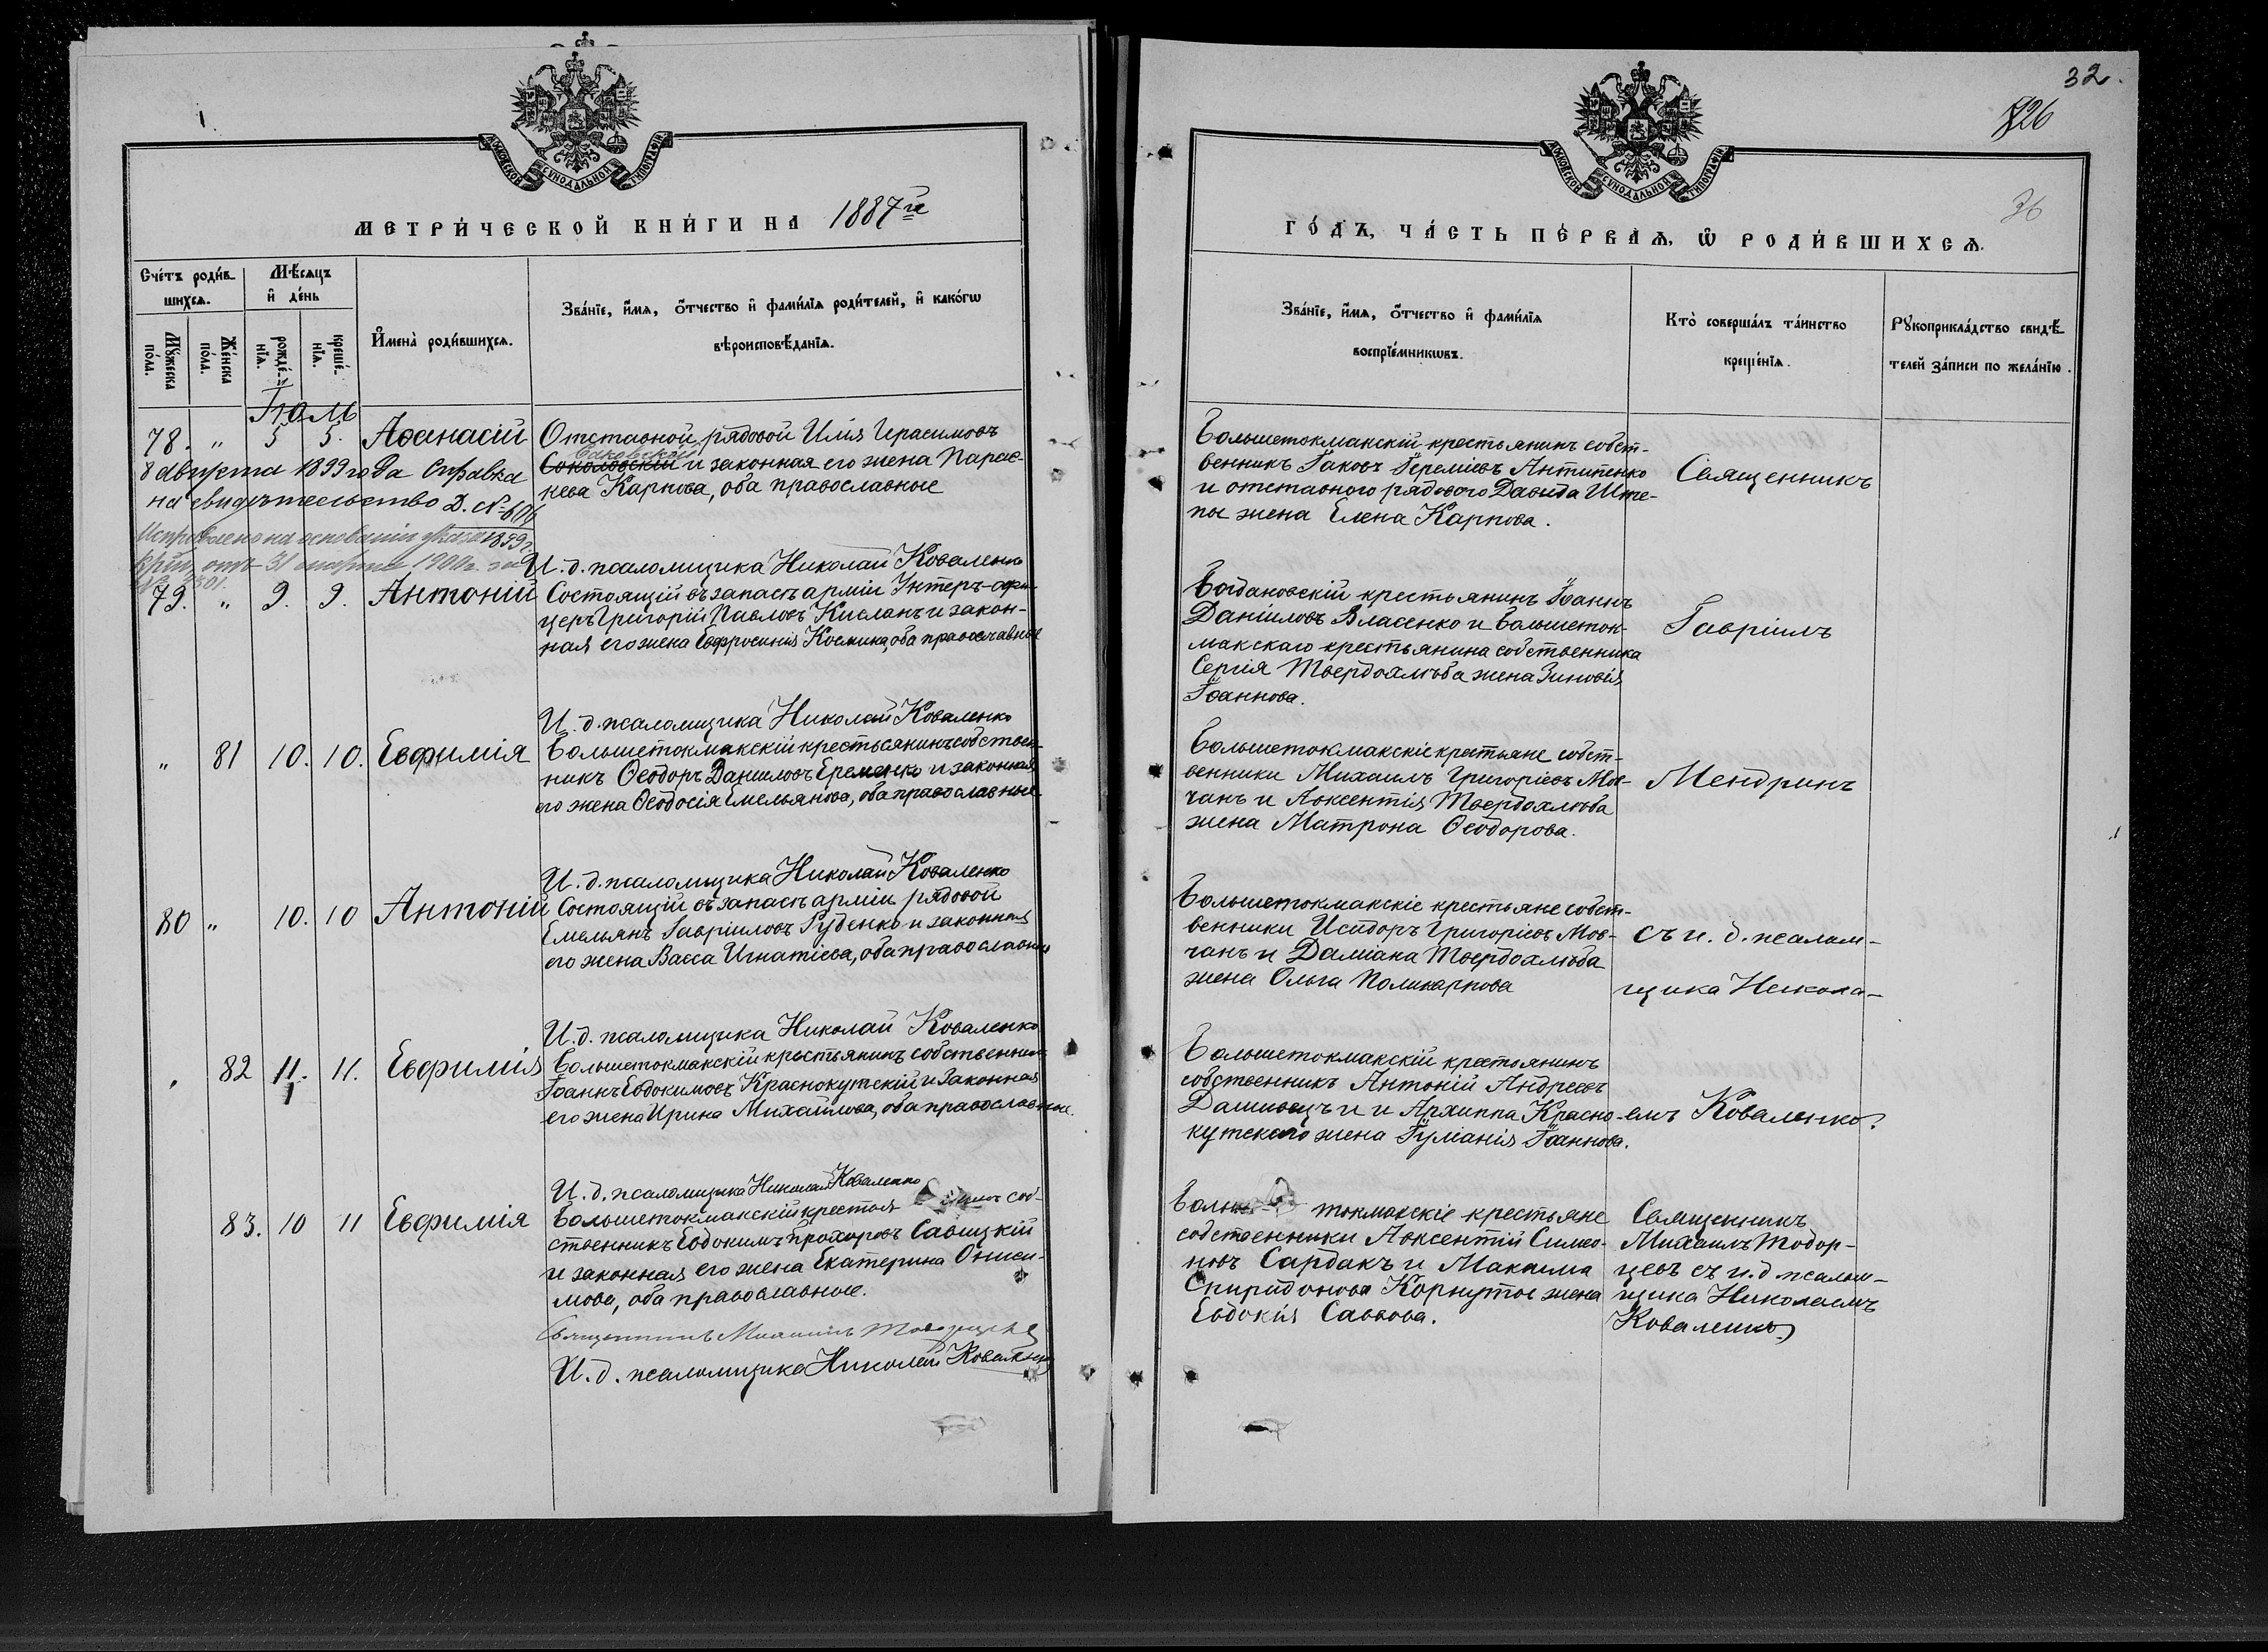 МОСКОВСКОЙ СѴНОДАЛЬНОЙ ТИПОГРАФІИ
МЕТРИ́ЧЕСКОЙ КНИ́ГИ НА 1887й
Сче́тъ роди́вшихсѧ.
Мѣ́сѧцъ и҆ де́нь
Мꙋ́жеска по́ла.
Же́нска по́ла.
рожде́нїѧ.
креще́нїѧ.
И҆мена̀ роди́вшихсѧ.
Зва́нїе, и҆́мѧ, ѻ҆́тчество и҆ фами́лїѧ роди́телей, и҆ како́гѡ
вѣроисповѣ́данїѧ.
Іюль
78. " 5 5. Аѳанасій
Отставной рядовой Илія Герасимовъ
Саковскій
Соколовскій и законная его жена Парас-
кева Карпова, оба православные
8 Августа 1899 года Справка
на свидѣтельство Д. № 606
Исправлено на основаніи указа 1899 г.
отъ 31 марта 1900 г. за
И. д. псаломщика Николай Коваленко
79. " 9. 9. Антоній
Состоящій въ запасѣ арміи Унтеръ-офи-
церъ Григорій Павловъ Кисланъ и закон-
ная его жена Евфросинія Космина, оба православные
И. д. псаломщика Николай Коваленко
" 81 10. 10. Евфимія
Большетокмакскій крестьянинъ собствен-
никъ Ѳеодоръ Даниловъ Еременко и законная
его жена Ѳеодосія Емельянова, оба православные
И. д. псаломщика Николай Коваленко
80 " 10. 10 Антоній
Состоящій въ запасѣ арміи рядовой
Емельянъ Гавріиловъ Руденко и законная
его жена Васса Игнатіева, оба православные
И. д. псаломщика Николай Коваленко
" 82 11. 11. Евфимія
Большетокмакскій крестьянинъ собственникъ
Іоаннъ Евдокимовъ Краснокутскій и законная
его жена Ирина Михаилова, оба православные.
И. д. псаломщика Николай Коваленко
83. 10 11 Евфимія
Большетокмакскій крестья нинъ соб-
ственникъ Евдокимъ Прохоровъ Савицкій
и законная его жена ЕкатеринаОниси-
мова, оба православные.
Священникъ Михаилъ Тодорцевъ
И. д. псаломщика Николай Коваленко
32.
126
36
МОСКОВСКОЙ СѴНОДАЛЬНОЙ ТИПОГРАФІИ
ГО́ДЪ, ЧА́СТЬ ПЕ́РВАѦ, Ѡ҆ РОДИ́ВШИХСѦ.
Зва́нїе, и҆́мѧ, ѻ҆́тчество и҆ фами́лїѧ
воспрїе́мникѡвъ.
Кто̀ соверша́лъ та́инство
креще́нїѧ.
Рꙋкоприкла́дство свидѣ́-
телей за́писи по жела́нїю.
Большетокмакскій крестьянинъ собст-
венникъ Іаковъ Іереміевъ Антипенко
и отставного рядового Давида Ште-
пы жена Елена Карпова.
Священникъ
Богдановскій крестьянинъ Іоаннъ
Даніиловъ Власенко и Большеток-
макскаго крестьянина собственника
Сергія Твердохлѣба жена Зиновія
Іоаннова.
Гавріилъ
Большетокмакскіе крестьяне собст-
венники Михаилъ Григоріевъ Мов-
чанъ и Авксентія Твердохлѣба
жена Матрона Ѳеодорова.
Мендринъ
Большетокмакскіе крестьяне собст-
венники Исидоръ Григоріевъ Мов-
чанъ и Даміана Твердохлѣба
жена Ольга Поликарпова
съ и. д. псалом-
щика Никола-
Большетокмакскій крестьянинъ
собственникъ Антоній Андреевъ
Дашивецъ и и Архиппа Красно-
кутскаго жена Іуліанія Іоаннова.
емъ Коваленко.
Больше токмакскіе крестьяне
собственники Авксентій Симео-
новъ Сардакъ и Максима
Спиридонова Корнутое жена
Евдокія Саввова.
Священникъ
Михаилъ Тодор-
цевъ съ и. д псалом-
щика Николаемъ
Коваленко